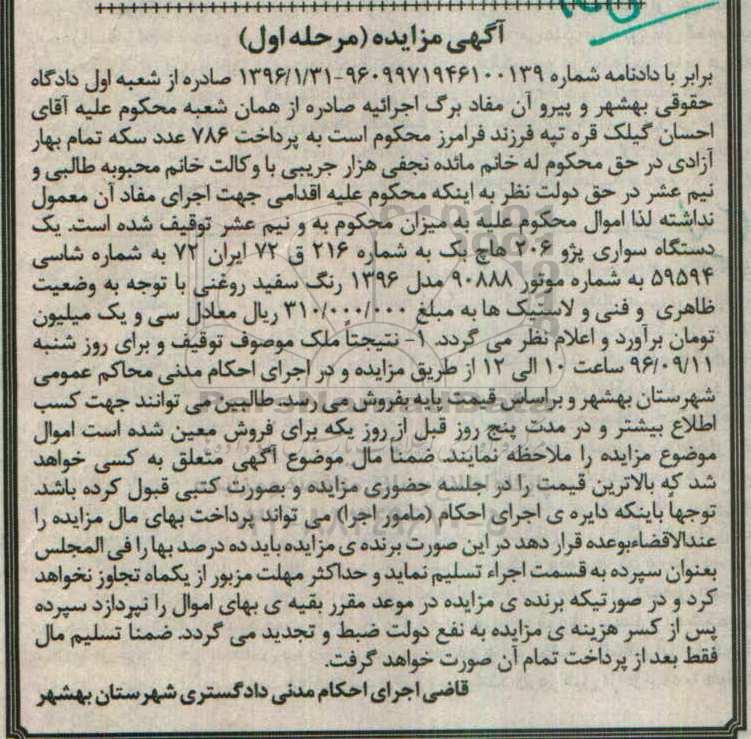 آگهی مزایده (مرحله اول)
برابر با دادنامه شماره ۹۶۰۹۹۷۱۹۴۶۱۰۰۱۳۹-۱۳۹۶/۱/۳۱ صادره از شعبه اول دادگاه
حقوقی بهشهر و پیرو آن مفاد برگ اجرائیه صادره از همان شعبه محکوم علیه آقای
احسان گیلک قره تپه فرزند فرامرز محکوم است به پرداخت ۷۸۶ عدد سکه تمام بهار
آزادی در حق محکوم له خانم مائده نجفی هزار جریبی با وکالت خانم محبوبه طالبی و
نیم عشر در حق دولت نظر به اینکه محکوم علیه اقدامی جهت اجرای مفاد آن معمول
نداشته لذا اموال محکوم علیه به میزان محکوم به و نیم عشر توقیف شده است. یک
دستگاه سواری پژو ۲۰۶ هاچ بک به شماره ۲۱۶ ق ۷۲ ایران ۷۲ به شماره شاسی
۵۹۵۹۴ به شماره موتور ۹۰۸۸۸ مدل ۱۳۹۶ رنگ سفید روغنی با توجه به وضعیت
ظاهری و فنی و لاستیک ها به مبلغ ۳۱۰/۰۰۰/۰۰۰ ریال معادل سی و یک میلیون
تومان برآورد و اعلام نظر می گردد. ۱- نتیجتاً ملک موصوف توقیف و برای روز شنبه
۹۶/۰۹/۱۱ ساعت ۱۰ الی ۱۲ از طریق مزایده و در اجرای احکام مدنی محاکم عمومی
شهرستان بهشهر و براساس قیمت پایه بفروش می رسد. طالبین می توانند جهت کسب
اطلاع بیشتر و در مدت پنج روز قبل از روز یکه برای فروش معین شده است اموال
موضوع مزایده را ملاحظه نمایند. ضمناً مال موضوع آگهی متعلق به کسی خواهد
شد که بالاترین قیمت را در جلسه حضوری مزایده و بصورت کتبی قبول کرده باشد.
توجهاً باینکه دایره ی اجرای احکام (مامور اجرا) می تواند پرداخت بهای مال مزایده را
عندالاقضاءبوعده قرار دهد در این صورت برنده ی مزایده باید ده درصد بها را فی المجلس
بعنوان سپرده به قسمت اجراء تسلیم نماید و حداکثر مهلت مزبور از یکماه تجاوز نخواهد
کرد و در صورتیکه برنده ی مزایده در موعد مقرر بقیه ی بهای اموال را نپردازد سپرده
پس از کسر هزینه ی مزایده به نفع دولت ضبط و تجدید می گردد. ضمناً تسلیم مال
فقط بعد از پرداخت تمام آن صورت خواهد گرفت.
قاضی اجرای احکام مدنی دادگستری شهرستان بهشهر